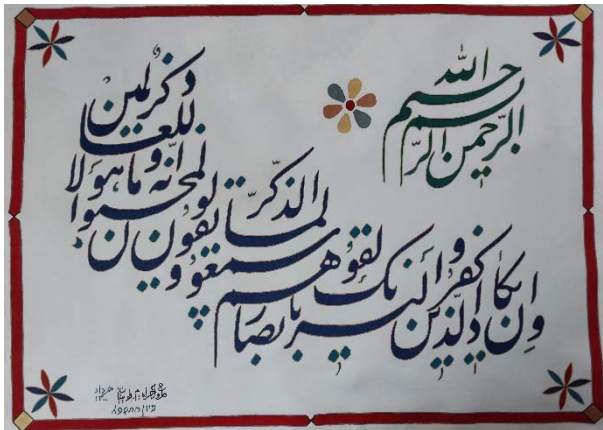 بسم الله الرحمن الرحیم
وان یکاد الذین کفروا لیزلقونک بابصارهم
لما سمعوا الذکر و یقولون انه لمجنون
وما هو الا ذکر للعالمین